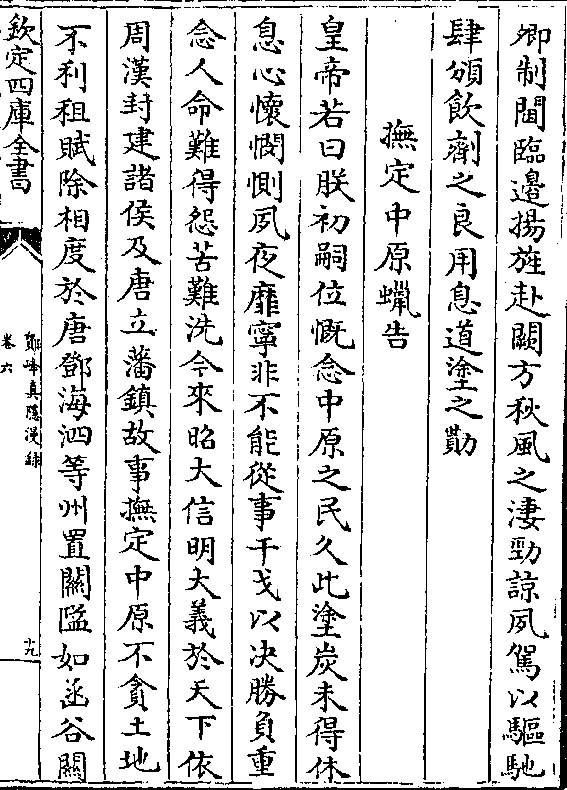 卿制閫臨邉揚旌赴闕方秋風之淒勁諒夙駕以驅馳
肆頒飲劑之良用息道塗之勩
撫定中原蠟告
皇帝若曰朕初嗣位慨念中原之民久此塗炭未得休
息心懷憫惻夙夜靡寧非不能從事干戈以决勝負重
念人命難得怨苦難洗今來昭大信明大義於天下依
周漢封建諸侯及唐立藩鎮故事撫定中原不貪土地
不利租賦除相度於唐鄧海泗等州置關隘如函谷關
欽定四庫全書
鄮峰真隱漫録
卷六
十九